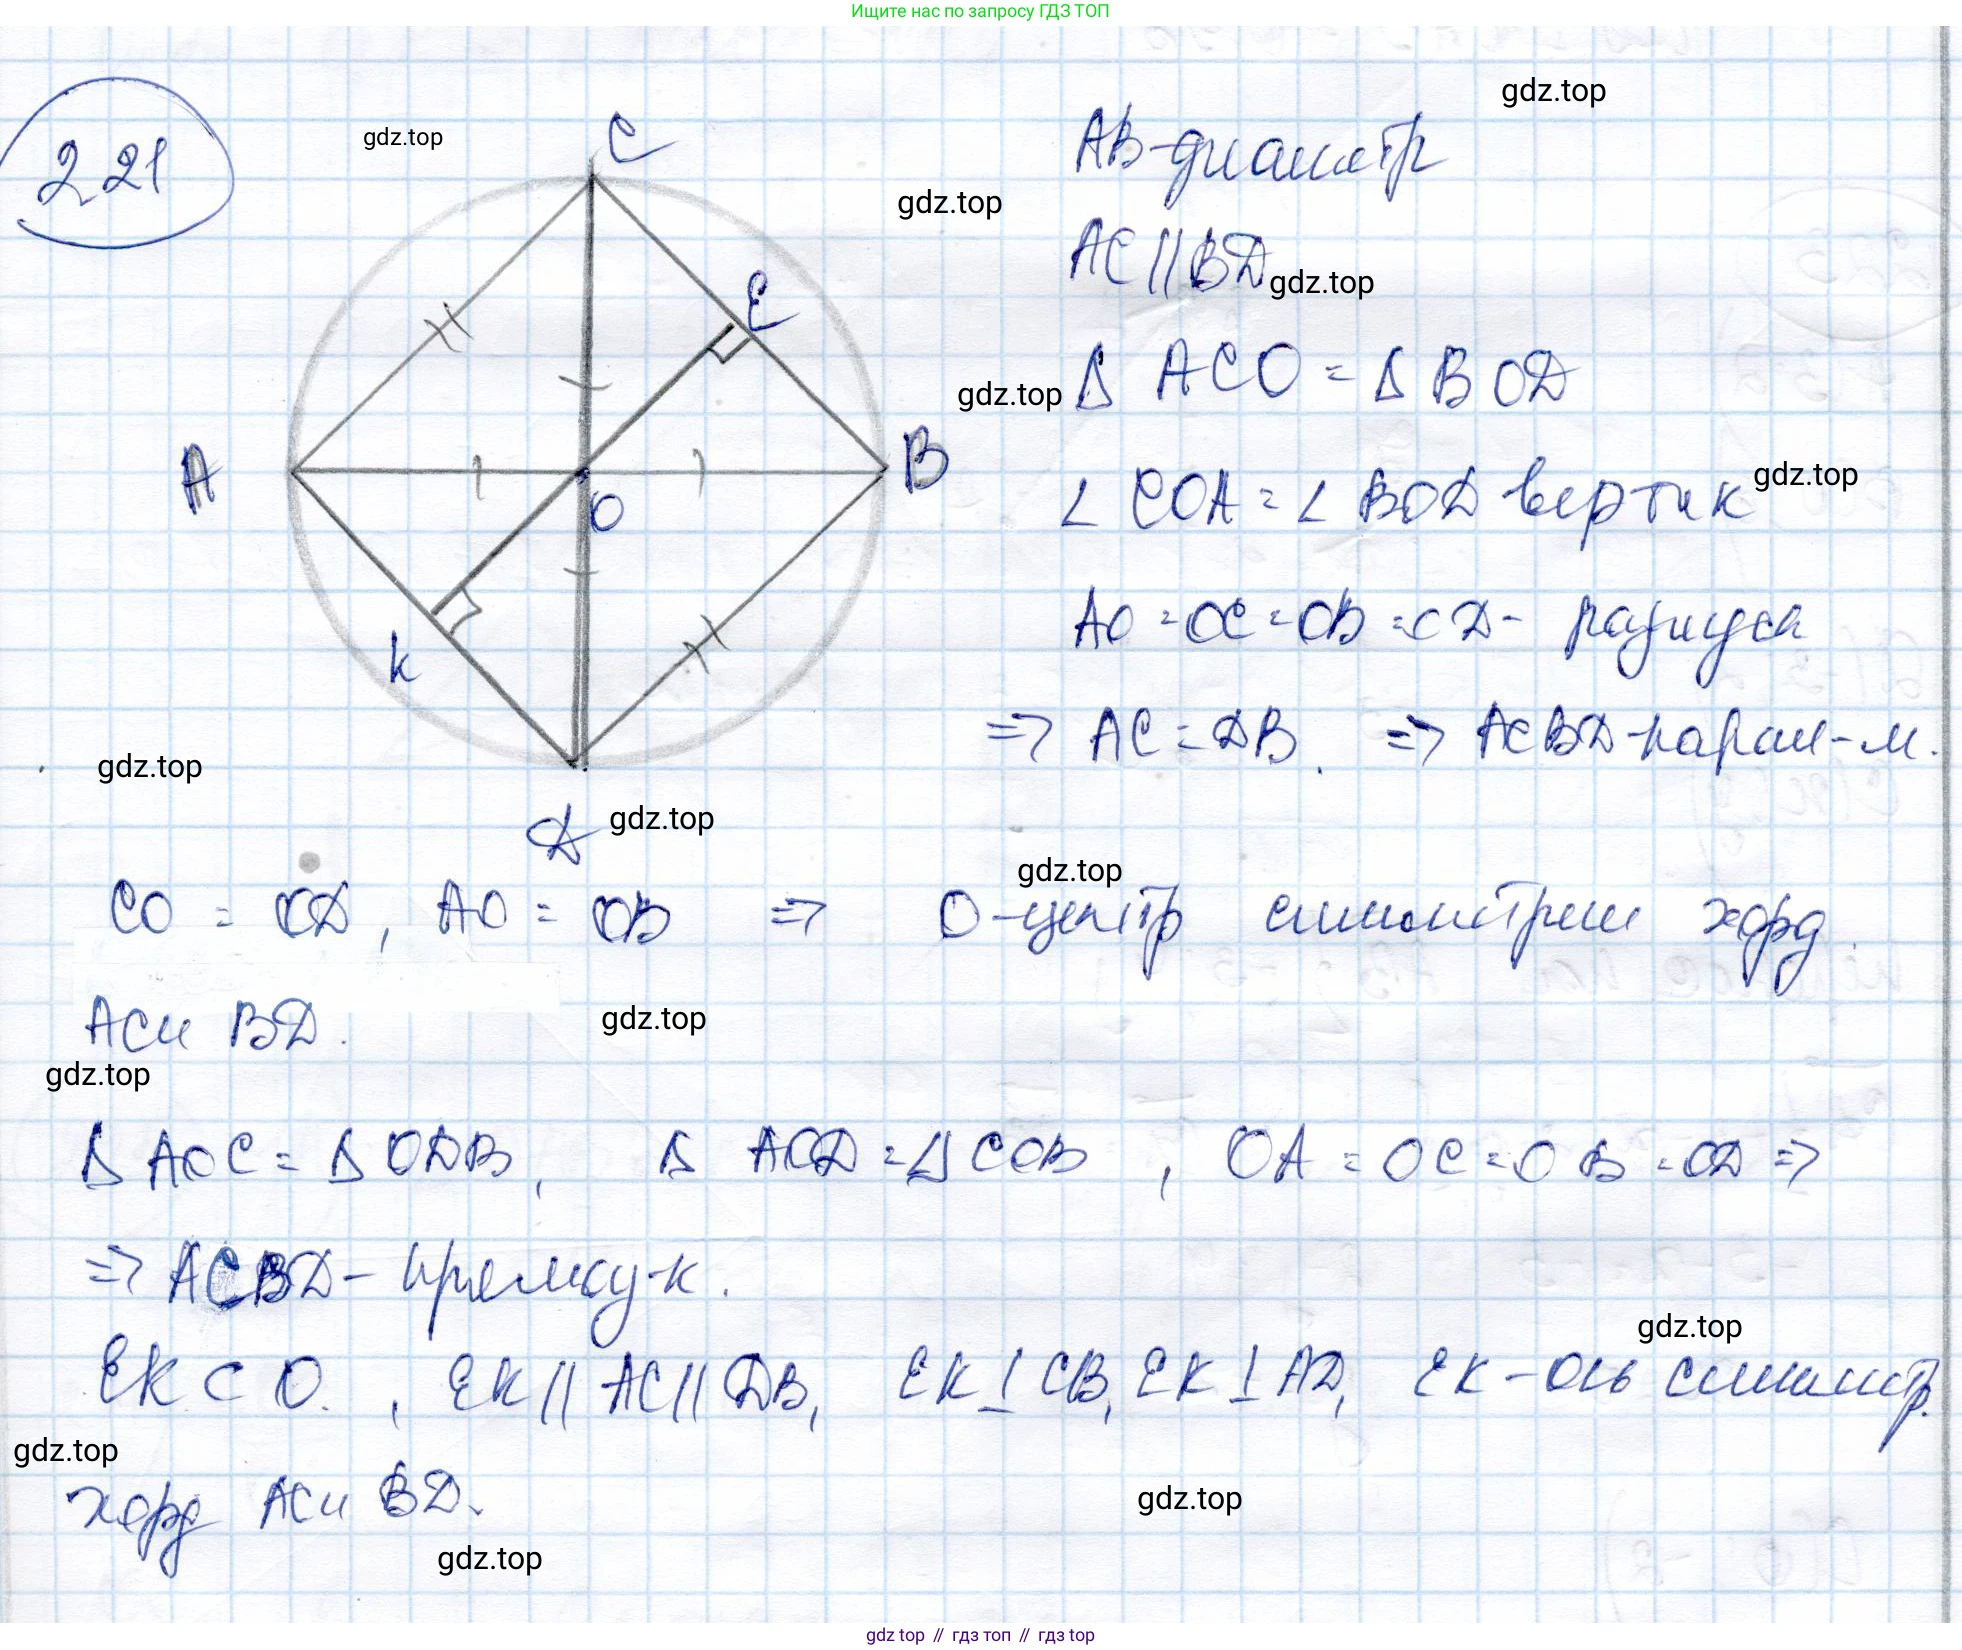 Ищите нас по запросу ГДЗ ТОП
gdz.top
221
gdz.top
C
AB-диаметр
gdz.top
AC || BD
gdz.top
E
Δ ACO = Δ BOD
gdz.top
A
B
∠ COA = ∠ BOD вертик
gdz.top
O
AO = OC = OB = OD - радиусы
K
⇒ AC = DB. ⇒ ACBD-парал-м.
gdz.top
D
gdz.top
gdz.top
CO = OD, AO = OB ⇒ O-центр симметрии хорд
AC и BD.
gdz.top
gdz.top
Δ AOC = Δ ODB, Δ AOD = Δ COB, OA = OC = OB = OD ⇒
⇒ ACBD - прямоу-к.
gdz.top
EK ⊂ O., EK || AC || DB, EK ⊥ CB, EK ⊥ AD, EK - ось симметр.
gdz.top
хорд AC и BD.
gdz.top
gdz.top
gdz top // гдз топ // гдз top